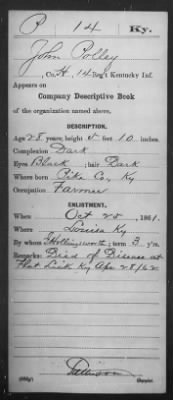 P 14 Ky.
John Polley
, Co. H, 14 Reg't Kentucky Inf.
Appears on
Company Descriptive Book
of the organization named above.
DESCRIPTION.
Age 28 years; height 5 feet 10 inches.
Complexion Dark
Eyes Black; hair Dark
Where born Pike Co, Ky
Occupation Farmer
ENLISTMENT.
When Oct 25, 1861.
Where Louisa Ky
By whom Hollingsworth; term 3 y'rs.
Remarks: Died of Disease at
Flat Lick Ky Apr 28/62
Copyist.